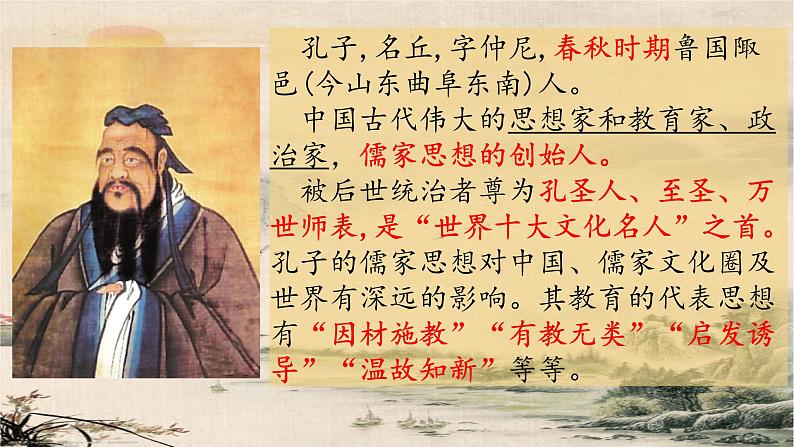 孔子,名丘,字仲尼,春秋时期鲁国陬
邑(今山东曲阜东南)人。
中国古代伟大的思想家和教育家、政
治家，儒家思想的创始人。
被后世统治者尊为孔圣人、至圣、万
世师表,是“世界十大文化名人”之首。
孔子的儒家思想对中国、儒家文化圈及
世界有深远的影响。其教育的代表思想
有“因材施教”“有教无类”“启发诱
导”“温故知新”等等。